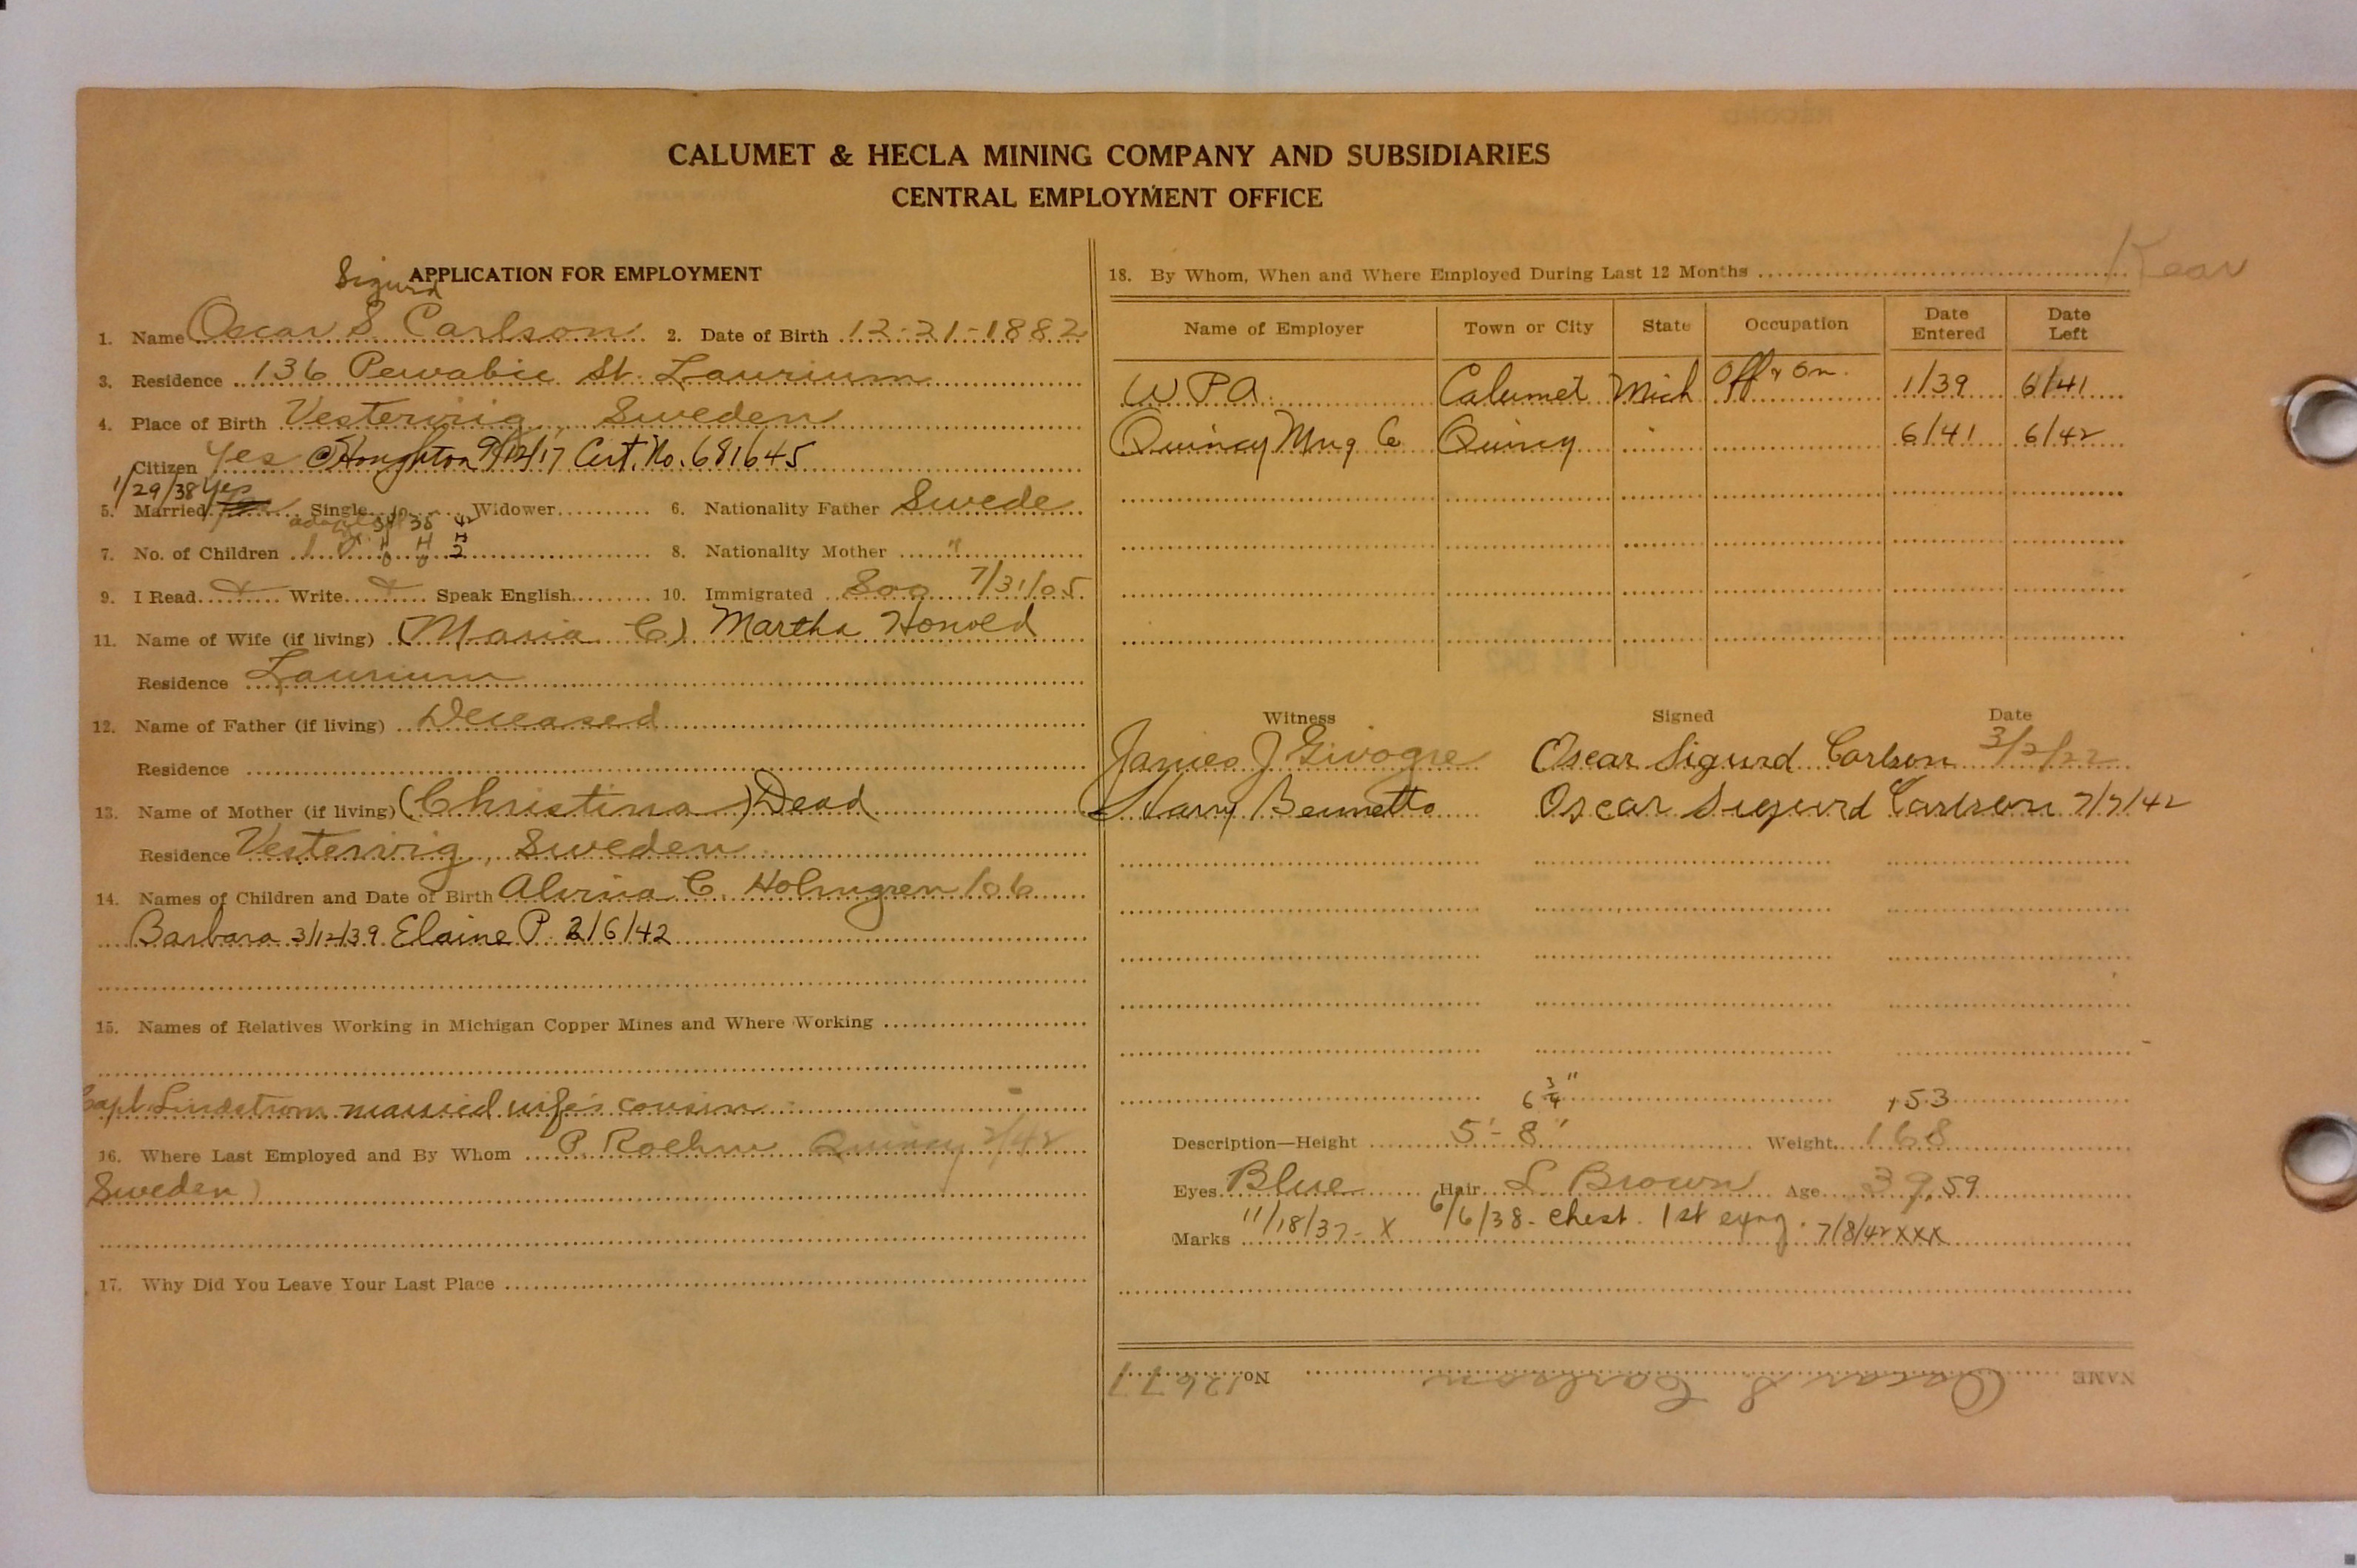 CALUMET & HECLA MINING COMPANY AND SUBSIDIARIES
CENTRAL EMPLOYMENT OFFICE
APPLICATION FOR EMPLOYMENT
Sigurd
1. Name Oscar S. Carlson 2. Date of Birth 12-21-1882
3. Residence 136 Pewabic St. Laurium
4. Place of Birth Vesterwig, Sweden
Citizen Yes Houghton 9/12/17 Cert. No. 681645
1/29/38 Yes
5. Married Single Widower 6. Nationality Father Swede
38 42
7. No. of Children 1 2 8. Nationality Mother "
9. I Read x Write x Speak English 10. Immigrated Soo 7/31/05
11. Name of Wife (if living) (Maria C.) Martha Honold
Residence Laurium
12. Name of Father (if living) Deceased
Residence
13. Name of Mother (if living) (Christina) Dead
Residence Vesterwig, Sweden
14. Names of Children and Date of Birth Alvina C. Holmgren
Barbara 3/12/39 Elaine P. 2/6/42
15. Names of Relatives Working in Michigan Copper Mines and Where Working
Capt Lindstrom married wife's cousin
16. Where Last Employed and By Whom P. Roehm Quincy
Sweden)
17. Why Did You Leave Your Last Place
18. By Whom, When and Where Employed During Last 12 Months Kear
Name of Employer Town or City State Occupation Date Entered Date Left
WPA Calumet Mich Off & On. 1/39 6/41
Quincy Mng Co Quincy " 6/41 6/42
Witness Signed Date
James J Givogre Oscar Sigurd Carlson 3/2/22
Harry Bennetts Oscar Sigurd Carlson 7/7/42
6 3/4" 153
Description—Height 5'-8" Weight 168
Eyes Blue Hair L Brown Age 39, 59
Marks 11/18/37 - X 6/6/38 - Chest. 1st exmg. 7/8/42 XXX
NAME Oscar S Carlson No. 12677